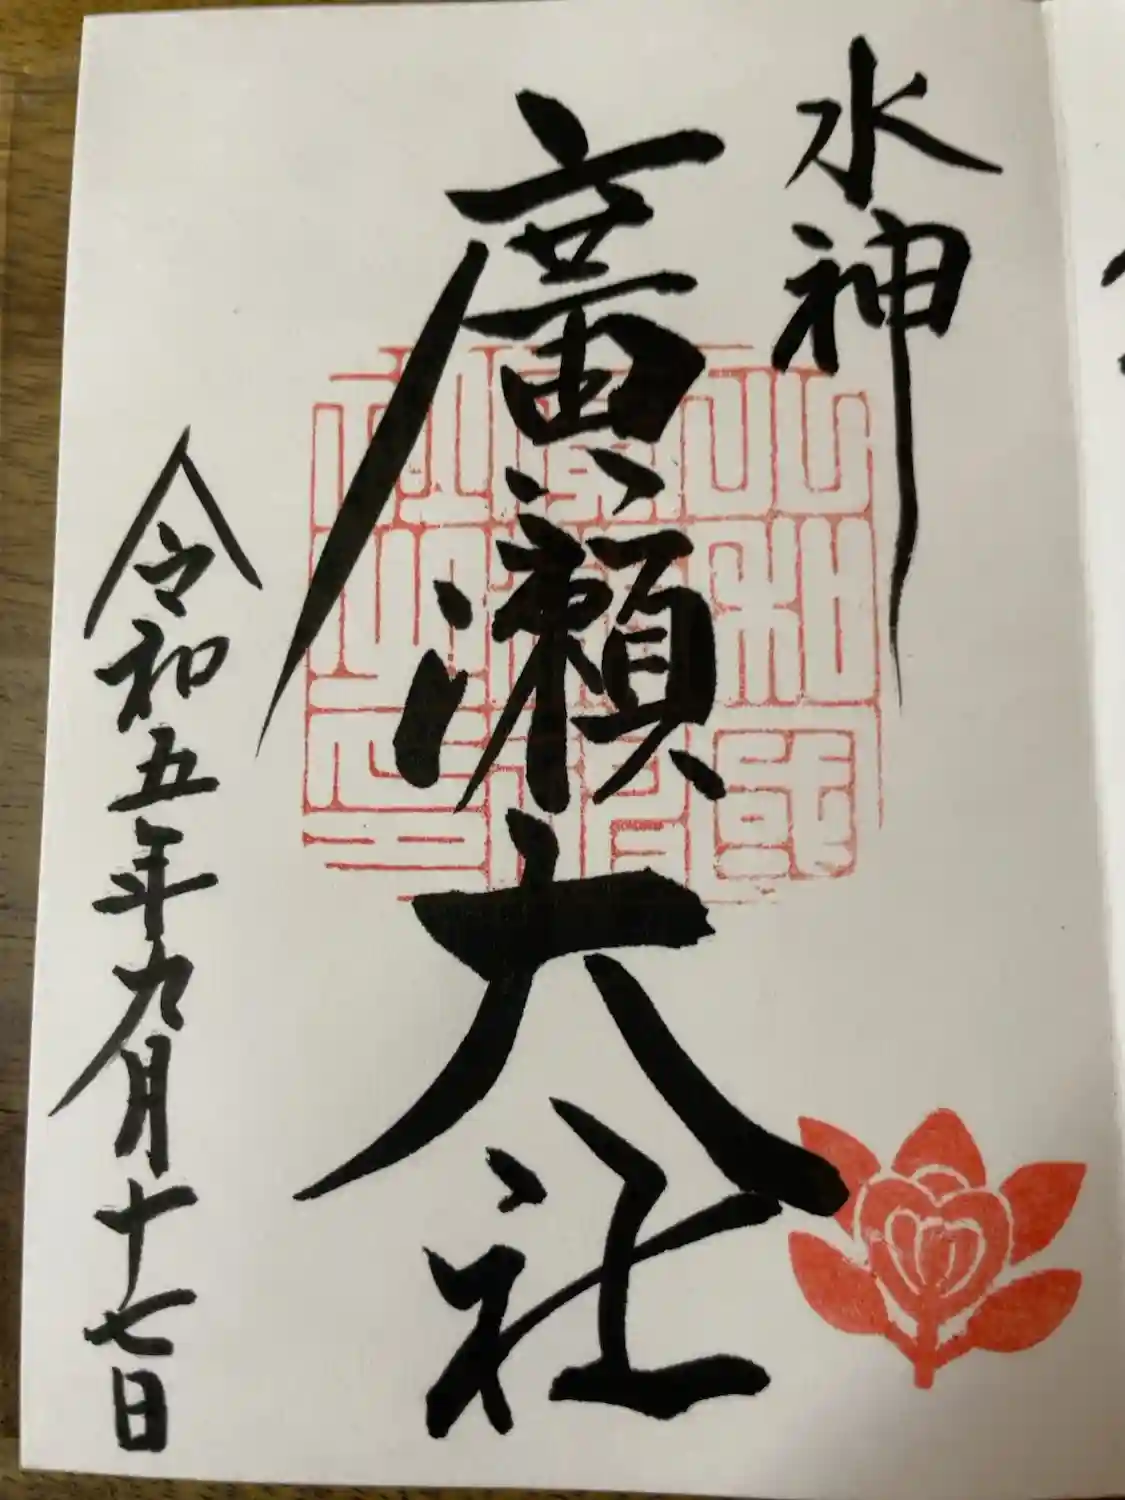 水神
廣瀬大社
令和五年九月十七日